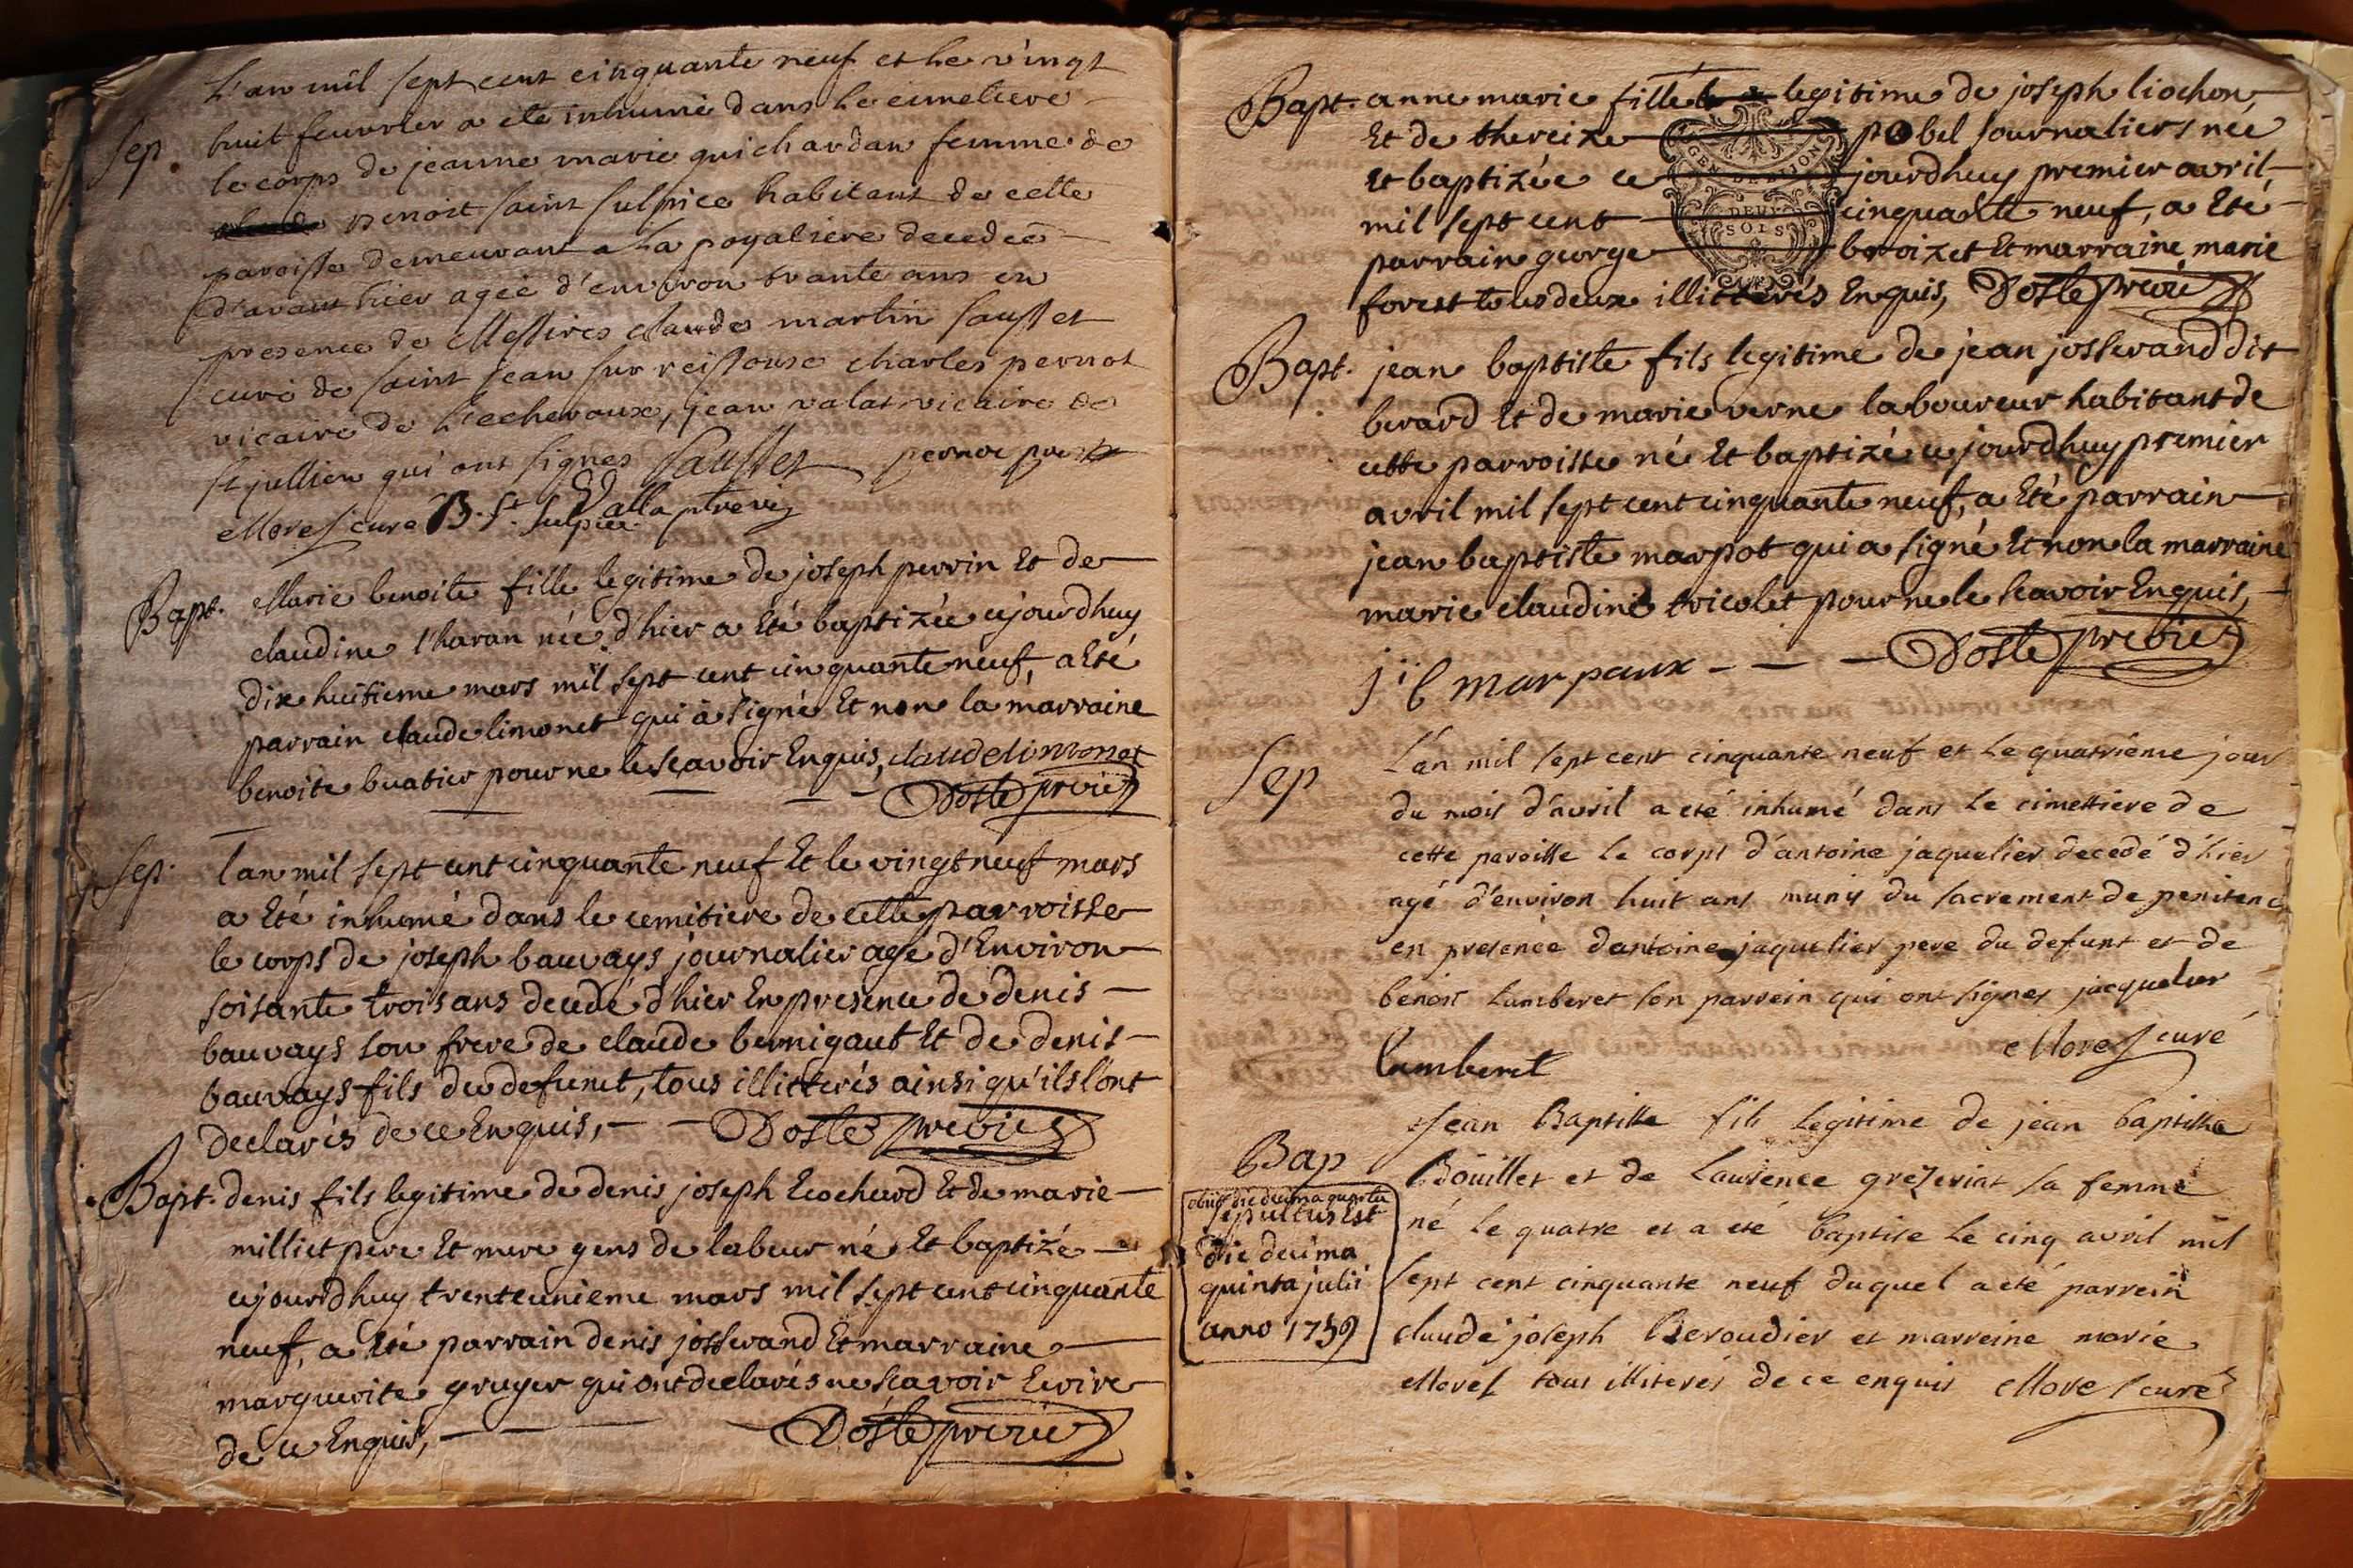 L'an mil sept cent cinquante neuf et le vingt
Sep. huit feuvrier a été inhumé dans le cimetiere
le corps de jeanne marie guichardan femme de
benoit saint sulpice habitant de cette
paroisse demeurant a la poyaliere decedée
d'avant hier agée d'environ trante ans en
presence de Messires claude martin sausset
curé de saint jean sur reissouse charles pernot
vicaire de L'echeroux, jean valat vicaire de
st jullien qui ont signés Sausset pernot
Morel curé B. St. Sulpice
Bapt. Marie benoite fille legitime de joseph perrin Et de
claudine tharan née d'hier a Eté baptizée cejourdhuy
dix huitieme mars mil sept cent cinquante neuf, a Eté
parrain claude limonet qui a signé Et non la marraine
benoite buatier pour ne le scavoir Enquis, claude limonet
Doste
Sep. lan mil sept cent cinquante neuf Et le vingt neuf mars
a Eté inhumé dans le cemitiere de cette parroisse
le corps de joseph bauvays journalier agé d'Environ
soisante trois ans decedé d'hier En presence de denis
bauvays son frere de claude bernigaut Et de denis
bauvays fils du defunct, tous illitterés ainsi qu'ils l'ont
declarés de ce Enquis, Doste
Bapt. denis fils legitime de denis joseph Ecochard Et de marie
milliet pere Et mere gens de labeur né Et baptizé
cejourdhuy trente unieme mars mil sept cent cinquante
neuf, a Eté parrain denis josserand Et marraine
marguerite gruyer qui ont declarés ne scavoir Ecrire
de ce Enquis, Doste
Bapt. anne marie fille legitime de joseph liochon,
Et de thereize pobel journaliers née
Et baptizée ce jourdhuy premier avril,
mil sept cent cinquante neuf, a Eté
parrain george boizet Et marraine marie
forest tous deux illitterés Enquis, Doste
GEN. DE DIJON
DEUX
SOLS
Bapt. jean baptiste fils legitime de jean josserand dit
berard Et de marie verne laboureur habitant de
cette parroisse né Et baptizé cejourdhuy premier
avril mil sept cent cinquante neuf, a Eté parrain
jean baptiste marpot qui a signé Et non la marraine
marie claudine tricolet pour ne le scavoir Enquis,
j B marpaux Doste
Sep L'an mil sept cent cinquante neuf et le quatriéme jour
du mois d'avril a eté inhumé dans le cimettiere de
cette paroisse le corps d'antoine jaquelier decedé d'hier
agé d'environ huit ans munis du sacrement de penitence
en presence d'antoine jaquelier pere du defunt et de
benoit Lumberet son parrein qui ont signes jacquelier
Lumberet Morel curé
Bap Jean Baptiste fils legitime de jean baptiste
Bouillet et de Laurence grezeriat sa femme
né le quatre et a eté baptise le cinq avril mil
sept cent cinquante neuf duquel a eté parrein
claude joseph Beroudier et marreine marie
Morel tous illiterés de ce enquis Morel curé
obiit die decima quarta
sepultus Est
die decima
quinta julii
anno 1759